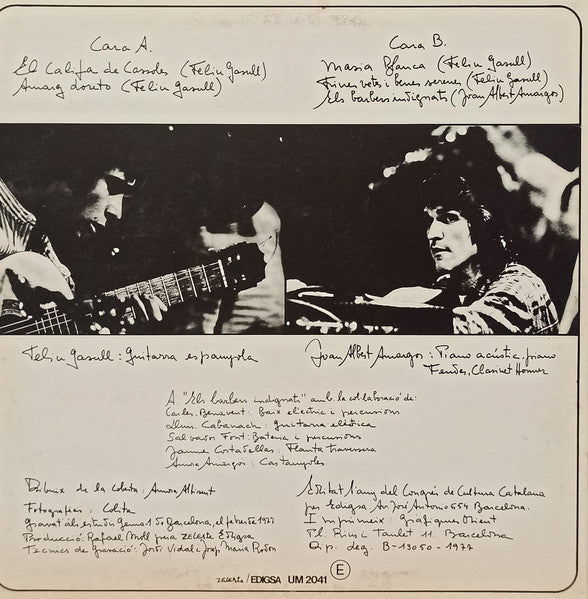 Cara A.
El Califa de Cassoles (Feliu Gasull)
Amarg doreto (Feliu Gasull)
Cara B.
Masia Blanca (Feliu Gasull)
Fines vetes i benes serenes (Feliu Gasull)
Els barbers indignats (Joan Albert Amargos)
Feliu Gasull : Guitarra espanyola
Joan Albert Amargos : Piano acústic, piano
Fender, Clarinet Hohner
A "Els barbers indignats" amb la col·laboració de:
Carles Benavent : Baix elèctric i percussions
Lluis Cabanach : guitarra elèctrica
Salvador Font : Bateria i percussions
Jaume Cortadellas : Flauta travessera
Amora Amargos : Castanyoles.
Dibuix de la coberta :
Fotografies : Colita
Gravat als estudis Gema 1 de Barcelona, el febrer de 1977
Producció : Rafael Moll per a ZELESTE Edigsa
Tècnics de gravació : Jordi Vidal i Josep Maria
Editat l'any del Congrés de Cultura Catalana
per Edigsa Av. José Antonio 654 Barcelona.
Imprimeix : Gràfiques Orient
Pl. Rius i Taulet 11. Barcelona
Dip. leg. B-13050-1977
zeleste / EDIGSA UM 2041 E